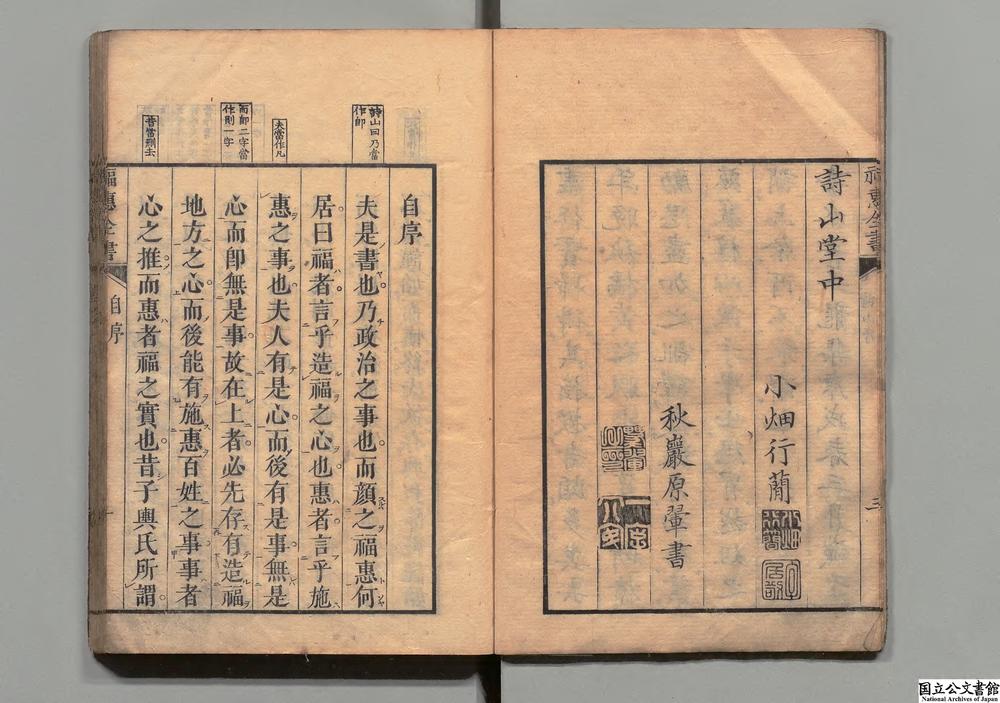 福惠全書
三
詩山堂中
小畑行蕑
小畑行簡
秋巖原翬書
詩山曰乃當
作卽
夫當作凡
而卽二字當
作則一字
昔當刪去
自序
夫是書也乃政治之事也而顔之福惠何
居曰福者言乎造福之心也惠者言乎施
惠之事也夫人有是心而後有是事無是
心而卽無是事故在上者必先存有造福
地方之心而後能有施惠百姓之事事者
心之推而惠者福之實也昔子輿氏所謂
福惠全書
自序
一
国立公文書館
National Archives of Japan